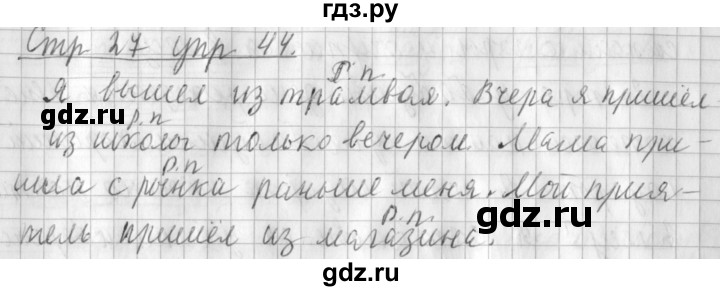 гдз.ру
Стр 27 упр 44.
Р.п
Я вышел из трамвая. Вчера я пришёл
gdz.ru
Р.п
из школы только вечером Мама при-
Р.п
шла с рынка раньше меня. Мой прия-
gdz.ru
Р.п.
тель пришёл из магазина.
gdz.ru